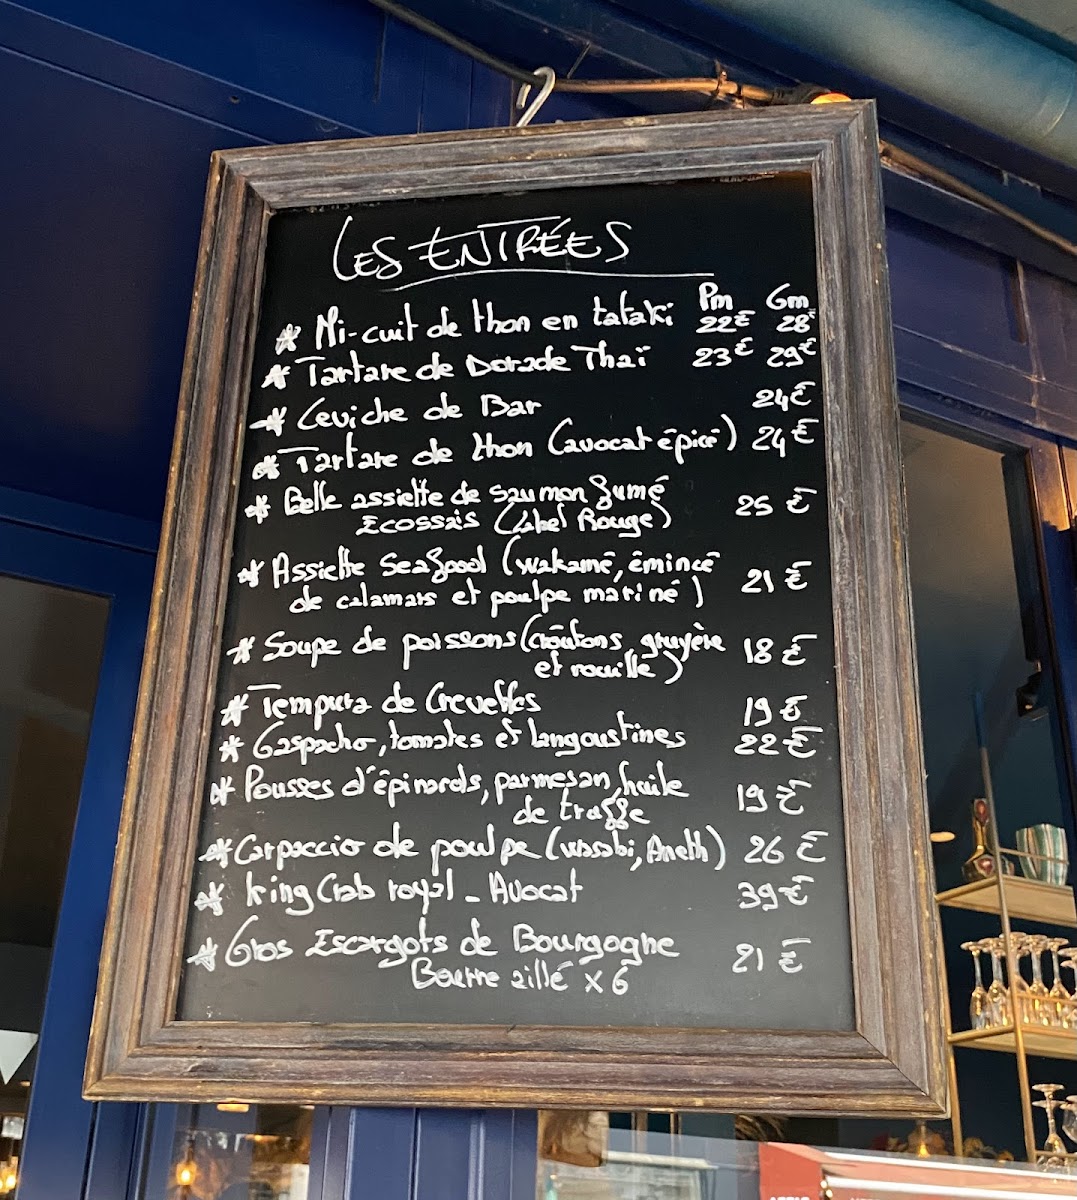 LES ENTRÉES
Pm Gm
* Mi-cuit de thon en tataki 22€ 28€
* Tartare de Dorade Thaï 23€ 29€
* Ceviche de Bar 24€
* Tartare de thon (avocat épicé) 24€
* Belle assiette de saumon fumé
Ecossais (Label Rouge) 25€
* Assiette Seafood (wakamé, émincé
de calamars et poulpe mariné) 21€
* Soupe de poissons (croûtons, gruyère
et rouille) 18€
* Tempura de Crevettes 19€
* Gaspacho, tomates et langoustines 22€
* Pousses d'épinards, parmesan, huile
de truffe 19€
* Carpaccio de poulpe (wasabi, Aneth) 26€
* King Crab royal - Avocat 39€
* Gros Escargots de Bourgogne
Beurre aillé x 6 21€